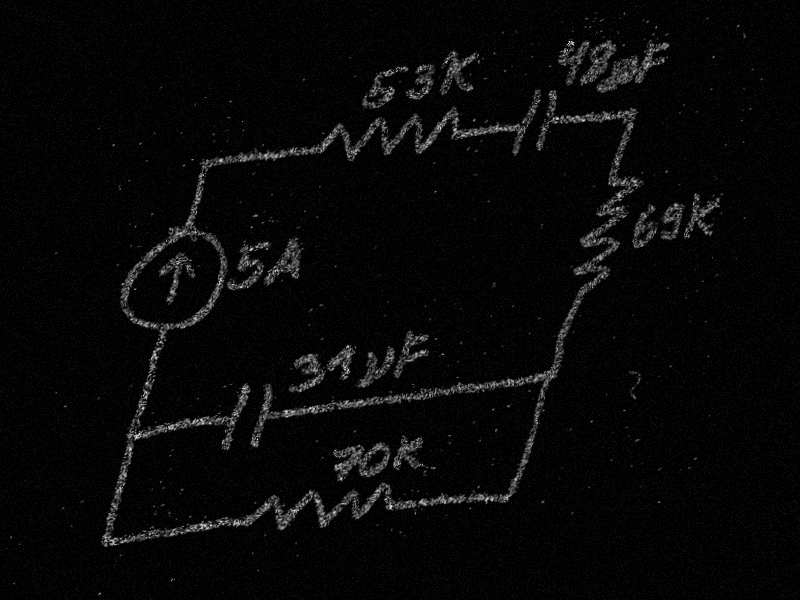 53K
48µF
69K
5A
31µF
70K